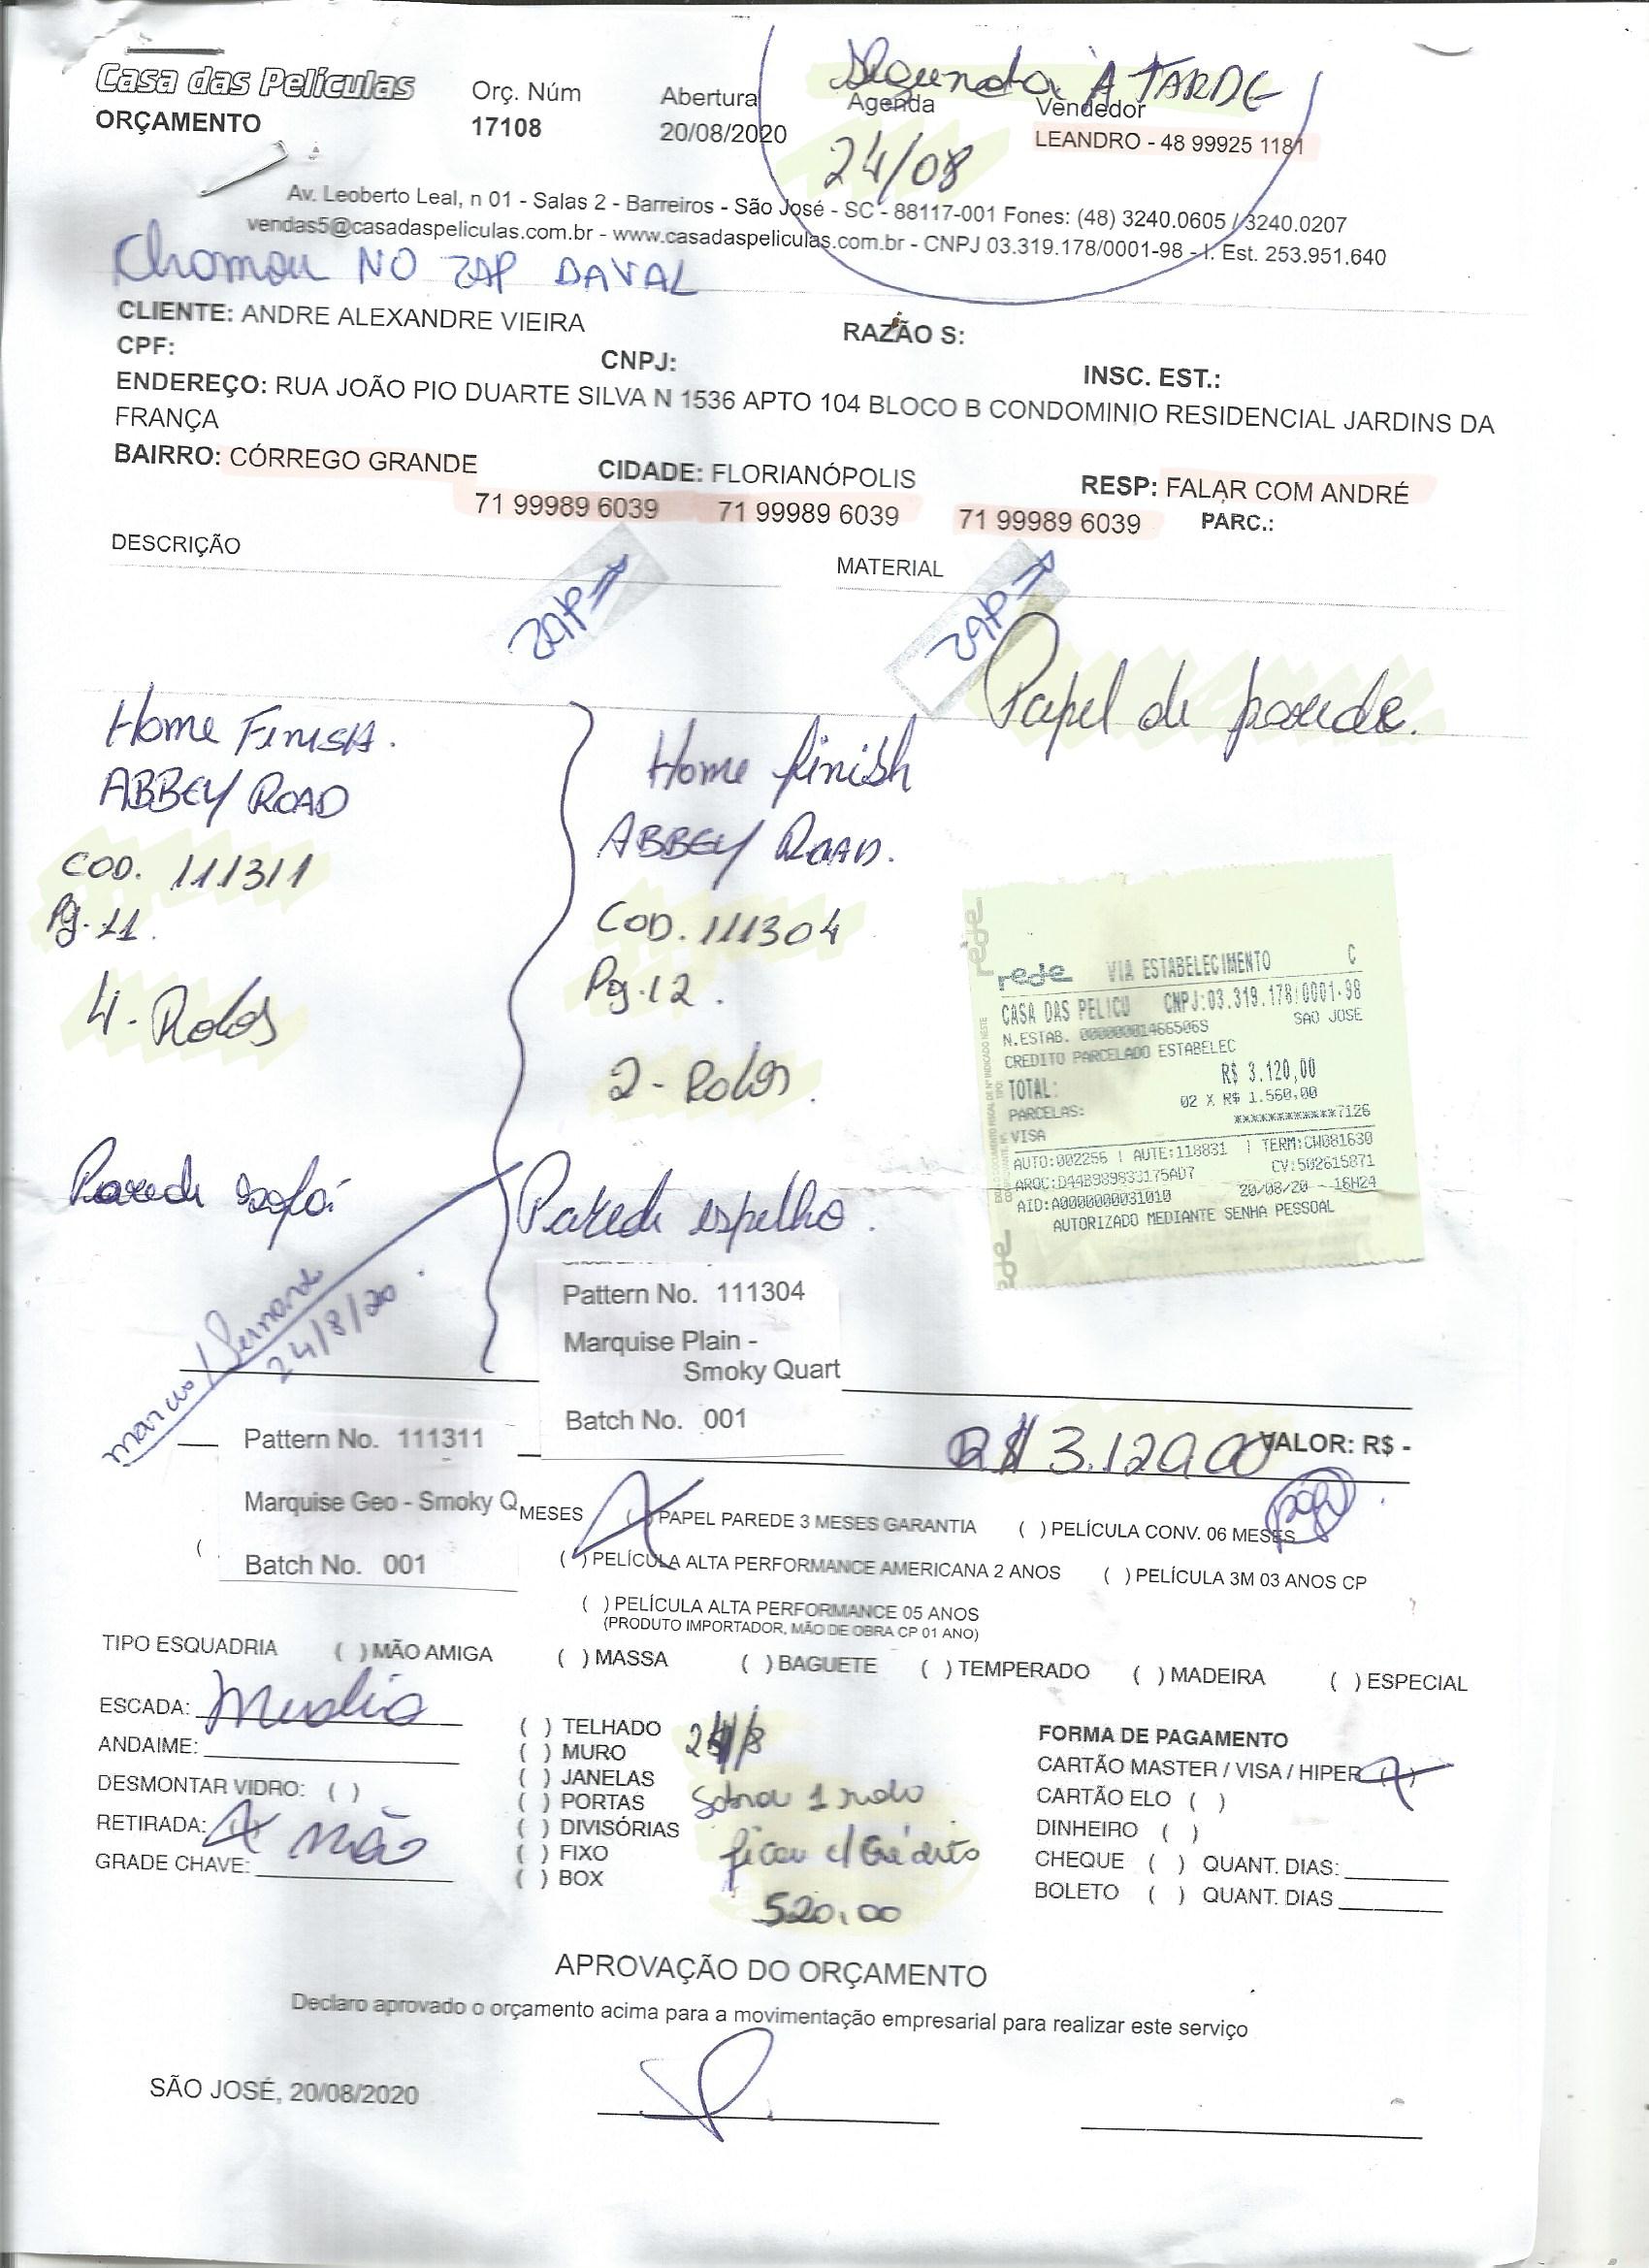 Casa das Películas
ORÇAMENTO
Orç. Núm
17108
Abertura
20/08/2020
Segunda À TARDE
Agenda
24/08
Vendedor
LEANDRO - 48 99925 1181
Av. Leoberto Leal, n 01 - Salas 2 - Barreiros - São José - SC - 88117-001 Fones: (48) 3240.0605 / 3240.0207
vendas5@casadaspeliculas.com.br - www.casadaspeliculas.com.br - CNPJ 03.319.178/0001-98 - I. Est. 253.951.640
Chamou NO ZAP DAVAL
CLIENTE: ANDRE ALEXANDRE VIEIRA
RAZÃO S:
CPF:
CNPJ:
INSC. EST.:
ENDEREÇO: RUA JOÃO PIO DUARTE SILVA N 1536 APTO 104 BLOCO B CONDOMINIO RESIDENCIAL JARDINS DA
FRANÇA
BAIRRO: CÓRREGO GRANDE
CIDADE: FLORIANÓPOLIS
RESP: FALAR COM ANDRÉ
71 99989 6039 71 99989 6039 71 99989 6039 PARC.:
DESCRIÇÃO
MATERIAL
ZAP
ZAP
Papel de parede.
Home Finish.
ABBEY ROAD
COD. 111311
Pg. 11.
4. Rolos
Parede sofá.
Home finish
ABBEY ROAD.
COD. 111304
Pg. 12.
2 - Rolos.
Parede espelho.
rede VIA ESTABELECIMENTO C
CASA DAS PELICU CNPJ:03.319.178/0001-98
N.ESTAB. 000000014665065 SAO JOSE
CREDITO PARCELADO ESTABELEC
TOTAL: R$ 3.120,00
PARCELAS: 02 X R$ 1.560,00
VISA ************7126
AUTO:002256 | AUTE:118831 | TERM:CW081630
ARQC:D44B989833175AD7 CV:502615871
AID:A0000000031010 20/08/20 - 16H24
AUTORIZADO MEDIANTE SENHA PESSOAL
24/8/20
Pattern No. 111304
Marquise Plain -
Smoky Quart
Batch No. 001
Pattern No. 111311
Marquise Geo - Smoky Q
Batch No. 001
R$ 3.120,00 VALOR: R$ -
MESES ( ) PAPEL PAREDE 3 MESES GARANTIA ( ) PELÍCULA CONV. 06 MESES
( ) PELÍCULA ALTA PERFORMANCE AMERICANA 2 ANOS ( ) PELÍCULA 3M 03 ANOS CP
( ) PELÍCULA ALTA PERFORMANCE 05 ANOS
(PRODUTO IMPORTADOR, MÃO DE OBRA CP 01 ANO)
TIPO ESQUADRIA ( ) MÃO AMIGA ( ) MASSA ( ) BAGUETE ( ) TEMPERADO ( ) MADEIRA ( ) ESPECIAL
ESCADA: media
ANDAIME:
DESMONTAR VIDRO: ( )
RETIRADA: X não
GRADE CHAVE:
( ) TELHADO
( ) MURO
( ) JANELAS
( ) PORTAS
( ) DIVISÓRIAS
( ) FIXO
( ) BOX
24/8
Sobrou 1 rolo
ficou c/ Crédito
520,00
FORMA DE PAGAMENTO
CARTÃO MASTER / VISA / HIPER (X)
CARTÃO ELO ( )
DINHEIRO ( )
CHEQUE ( ) QUANT. DIAS:
BOLETO ( ) QUANT. DIAS
APROVAÇÃO DO ORÇAMENTO
Declaro aprovado o orçamento acima para a movimentação empresarial para realizar este serviço
SÃO JOSÉ, 20/08/2020